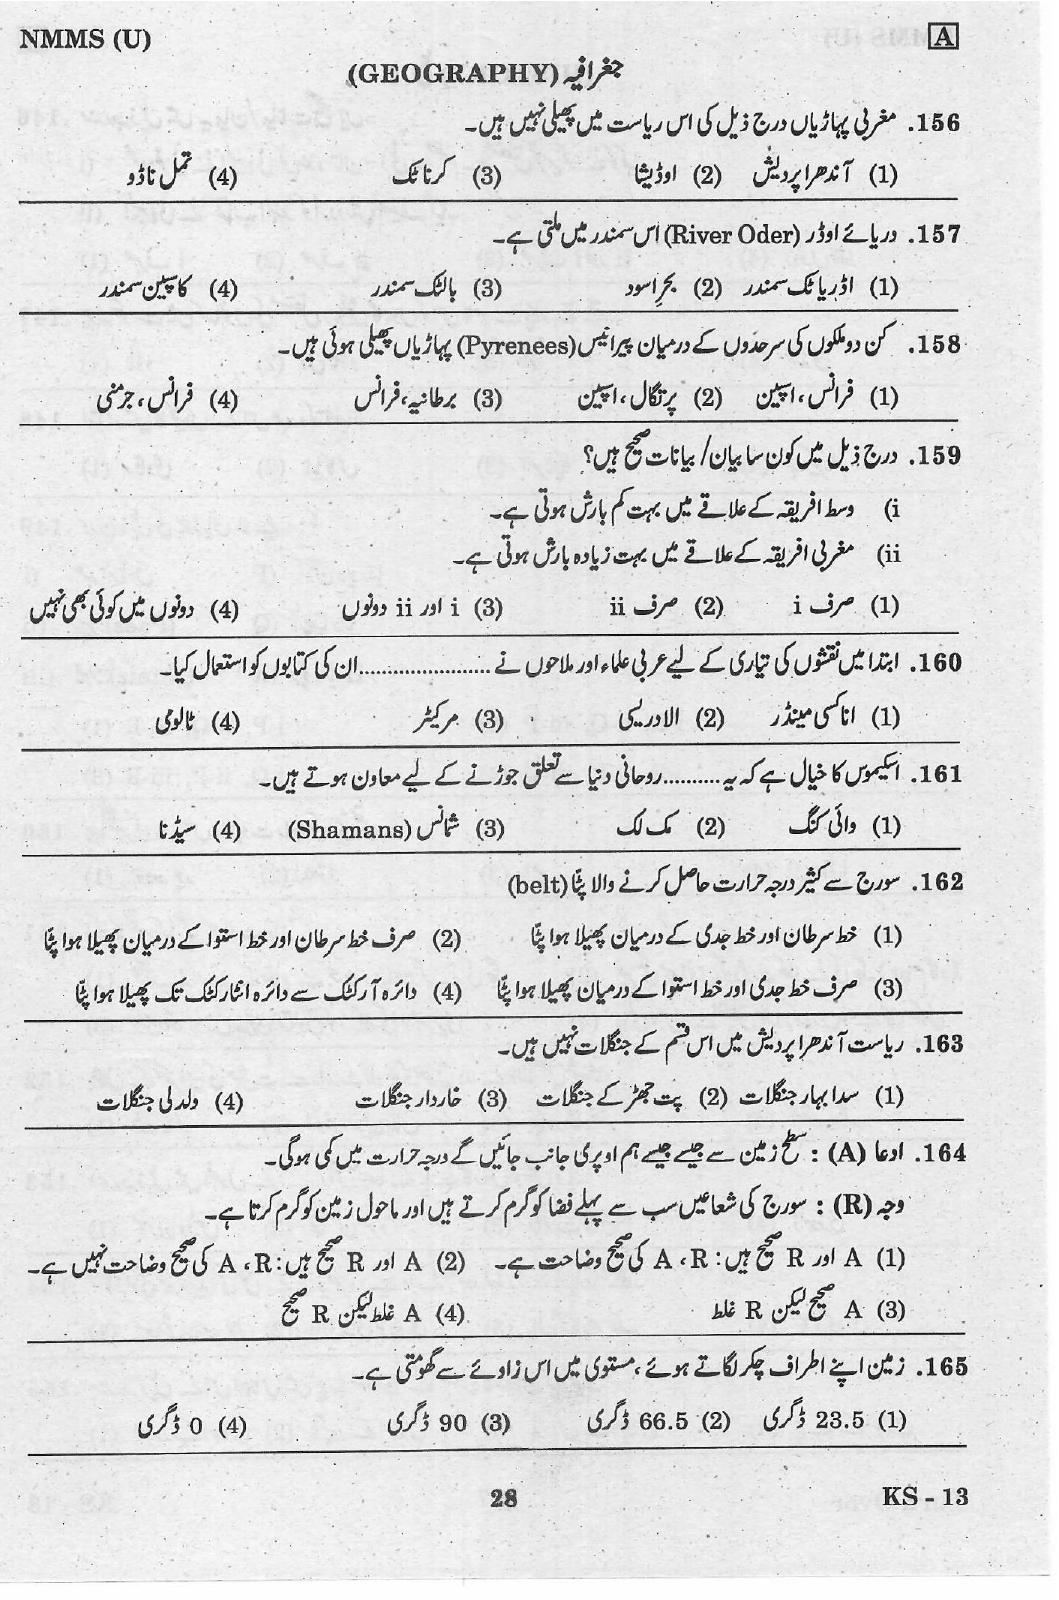 NMMS (U)
A
جغرافیہ (GEOGRAPHY)
156. مغربی پہاڑیاں درج ذیل کی اس ریاست میں پھیلی نہیں ہیں۔
(1) آندھرا پردیش (2) اوڈیشا (3) کرناٹک (4) تمل ناڈو
157. دریائے اوڈر (River Oder) اس سمندر میں ملتی ہے۔
(1) اڈریاٹک سمندر (2) بحرِ اسود (3) بالٹک سمندر (4) کاسپین سمندر
158. کن دو ملکوں کی سرحدوں کے درمیان پیرانیس (Pyrenees) پہاڑیاں پھیلی ہوئی ہیں۔
(1) فرانس، اسپین (2) پرتگال، اسپین (3) برطانیہ، فرانس (4) فرانس، جرمنی
159. درج ذیل میں کون سا بیان/ بیانات صحیح ہیں؟
i) وسط افریقہ کے علاقے میں بہت کم بارش ہوتی ہے۔
ii) مغربی افریقہ کے علاقے میں بہت زیادہ بارش ہوتی ہے۔
(1) صرف i (2) صرف ii (3) i اور ii دونوں (4) دونوں میں کوئی بھی نہیں
160. ابتدا میں نقشوں کی تیاری کے لیے عربی علماء اور ملاحوں نے ....................... ان کی کتابوں کو استعمال کیا۔
(1) اناکسی مینڈر (2) الادریسی (3) مرکیٹر (4) ٹالومی
161. اسکیموس کا خیال ہے کہ یہ .......... روحانی دنیا سے تعلق جوڑنے کے لیے معاون ہوتے ہیں۔
(1) وائی کنگ (2) مک لک (3) شمانس (Shamans) (4) سیڈنا
162. سورج سے کثیر درجہ حرارت حاصل کرنے والا پٹّا (belt)
(1) خط سرطان اور خط جدی کے درمیان پھیلا ہوا پٹّا (2) صرف خط سرطان اور خط استوا کے درمیان پھیلا ہوا پٹّا
(3) صرف خط جدی اور خط استوا کے درمیان پھیلا ہوا پٹّا (4) دائرہ آرکٹک سے دائرہ انٹارکٹک تک پھیلا ہوا پٹّا
163. ریاست آندھرا پردیش میں اس قسم کے جنگلات نہیں ہیں۔
(1) سدا بہار جنگلات (2) پت جھڑ کے جنگلات (3) خاردار جنگلات (4) دلدلی جنگلات
164. ادعا (A) : سطح زمین سے جیسے جیسے ہم اوپری جانب جائیں گے درجہ حرارت میں کمی ہوگی۔
وجہ (R) : سورج کی شعاعیں سب سے پہلے فضا کو گرم کرتے ہیں اور ماحول زمین کو گرم کرتا ہے۔
(1) A اور R صحیح ہیں: A ، R کی صحیح وضاحت ہے۔ (2) A اور R صحیح ہیں: A ، R کی صحیح وضاحت نہیں ہے۔
(3) A صحیح لیکن R غلط (4) A غلط لیکن R صحیح
165. زمین اپنے اطراف چکر لگاتے ہوئے، مستوی میں اس زاوئے سے گھومتی ہے۔
(1) 23.5 ڈگری (2) 66.5 ڈگری (3) 90 ڈگری (4) 0 ڈگری
28
KS - 13